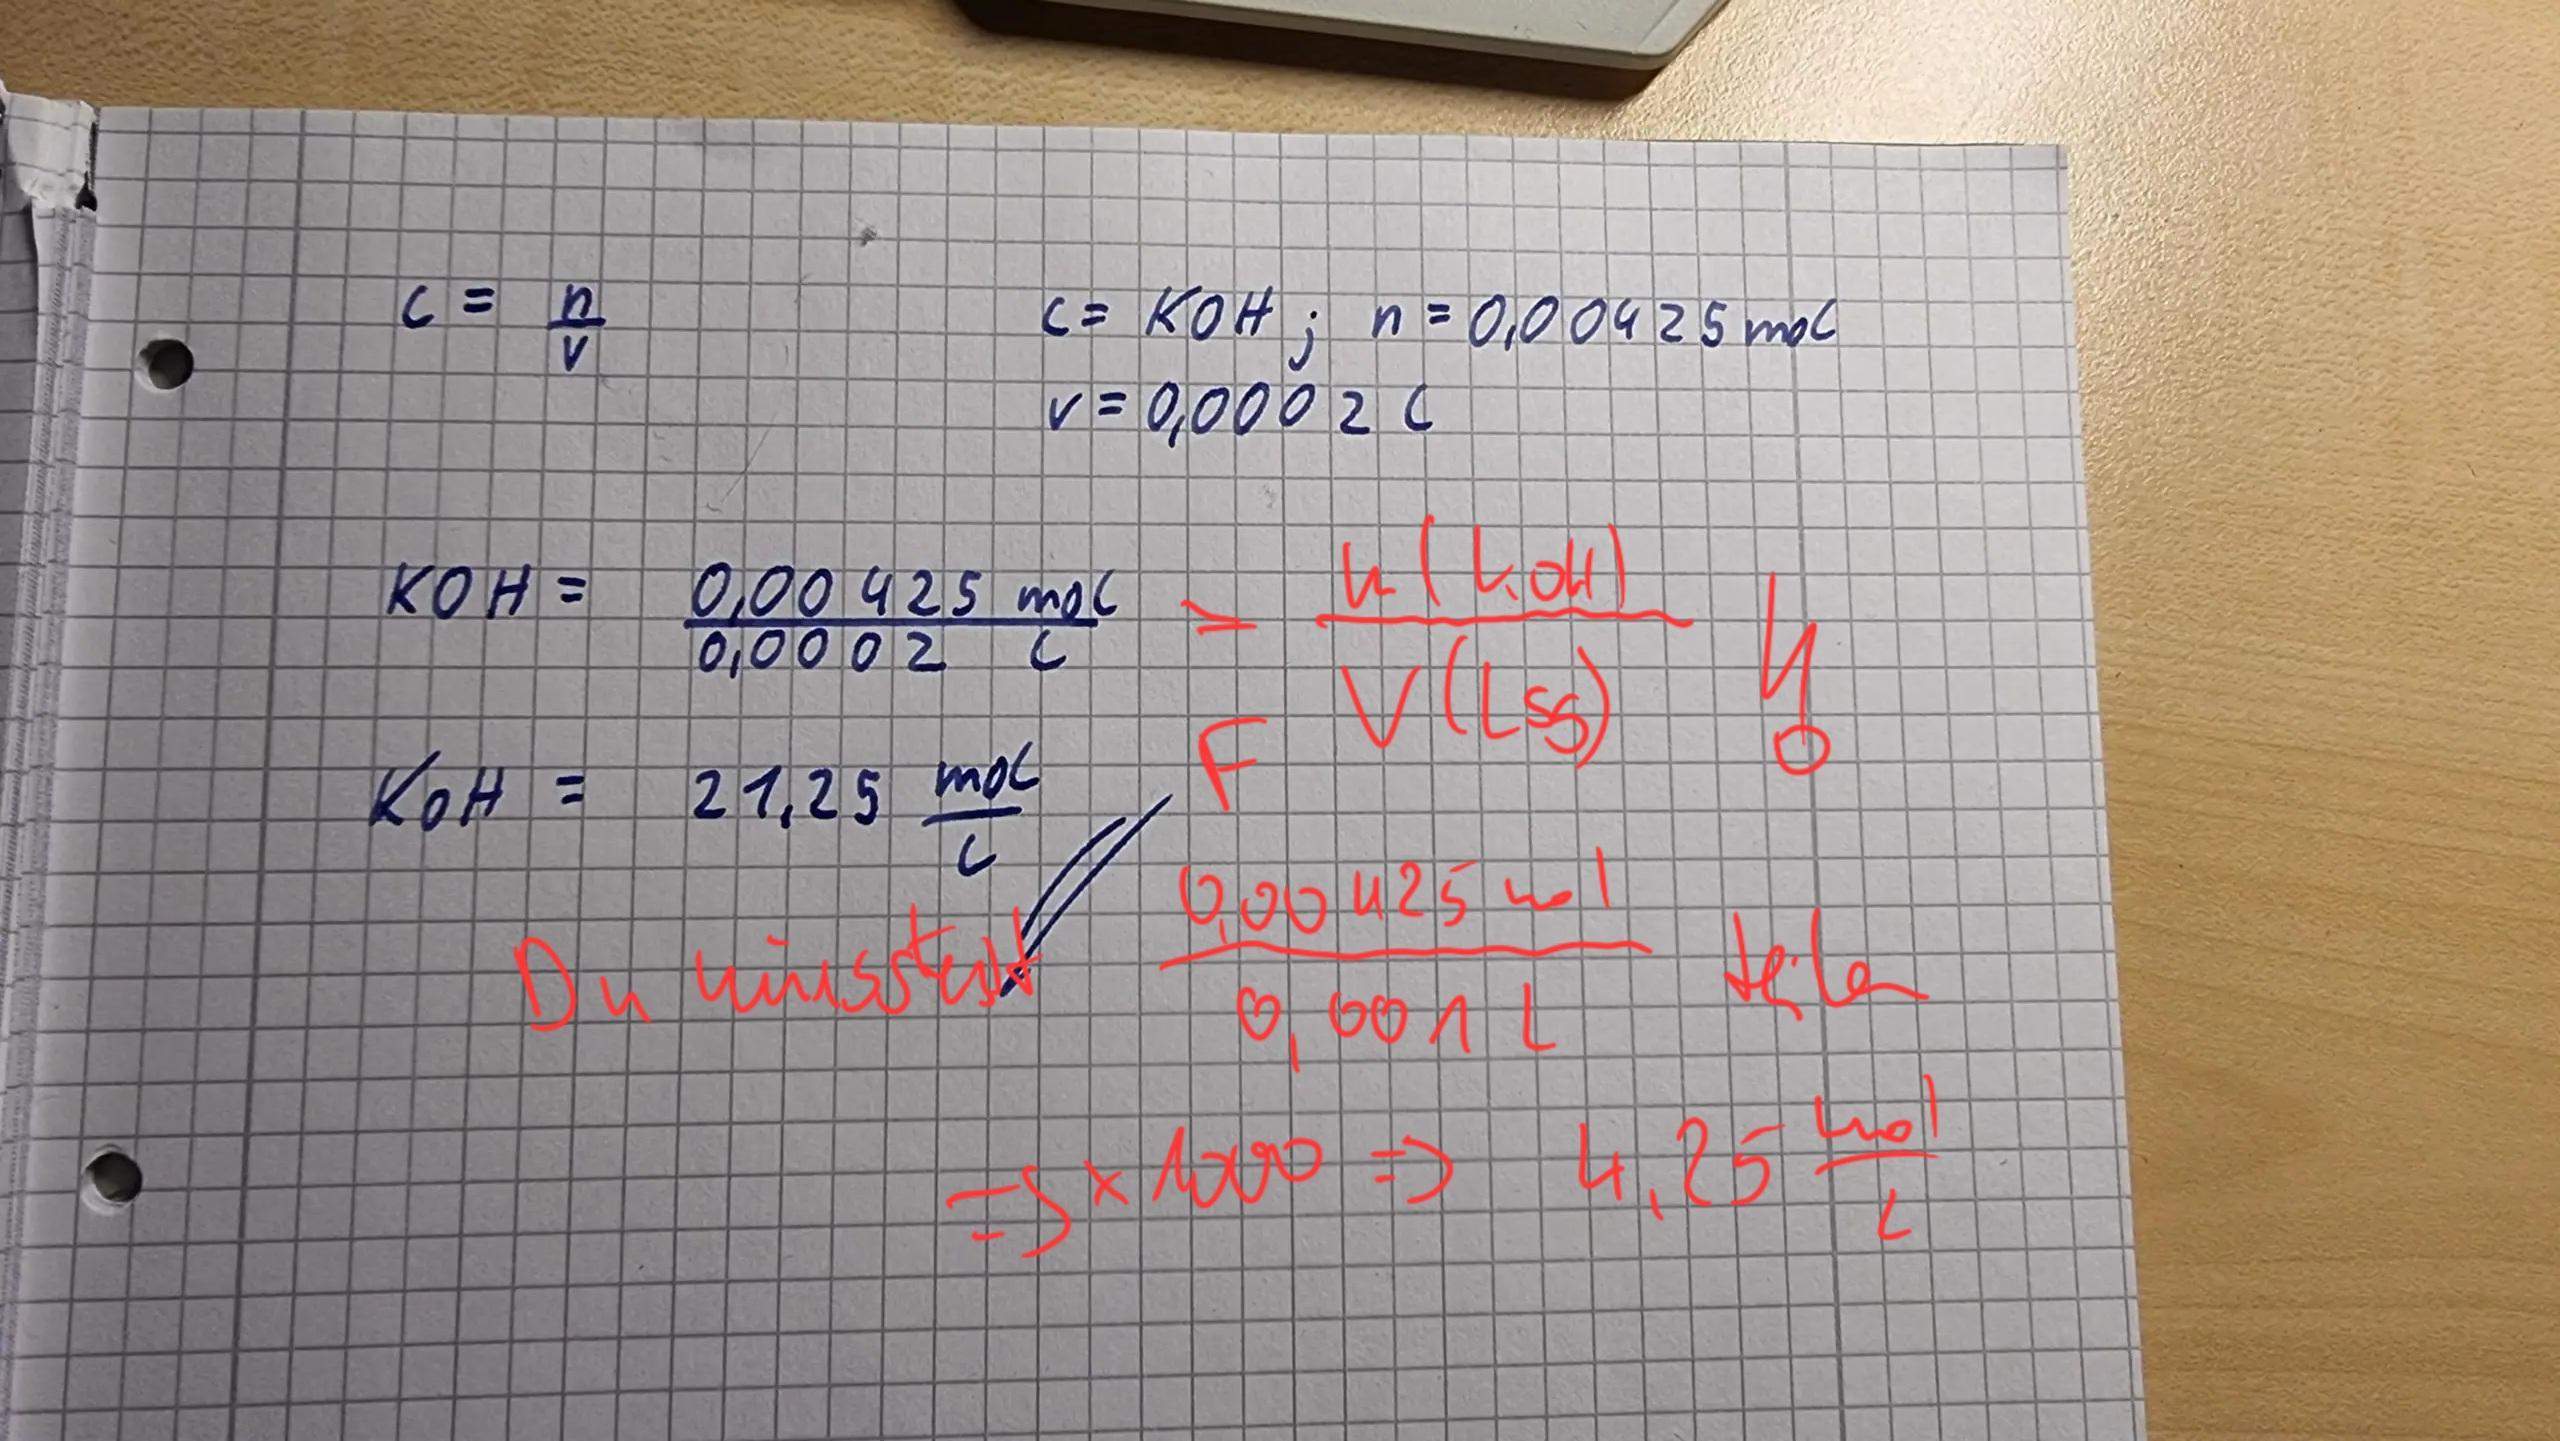 c = n/v
c = KOH ; n = 0,00425 mol
v = 0,0002 L
KOH = 0,00425 mol / 0,0002 L = n(KOH) / V(Lsg)
F
KOH = 21,25 mol/L
Du müsstest 0,00425 mol / 0,001 L teilen
=> × 1000 => 4,25 mol/L